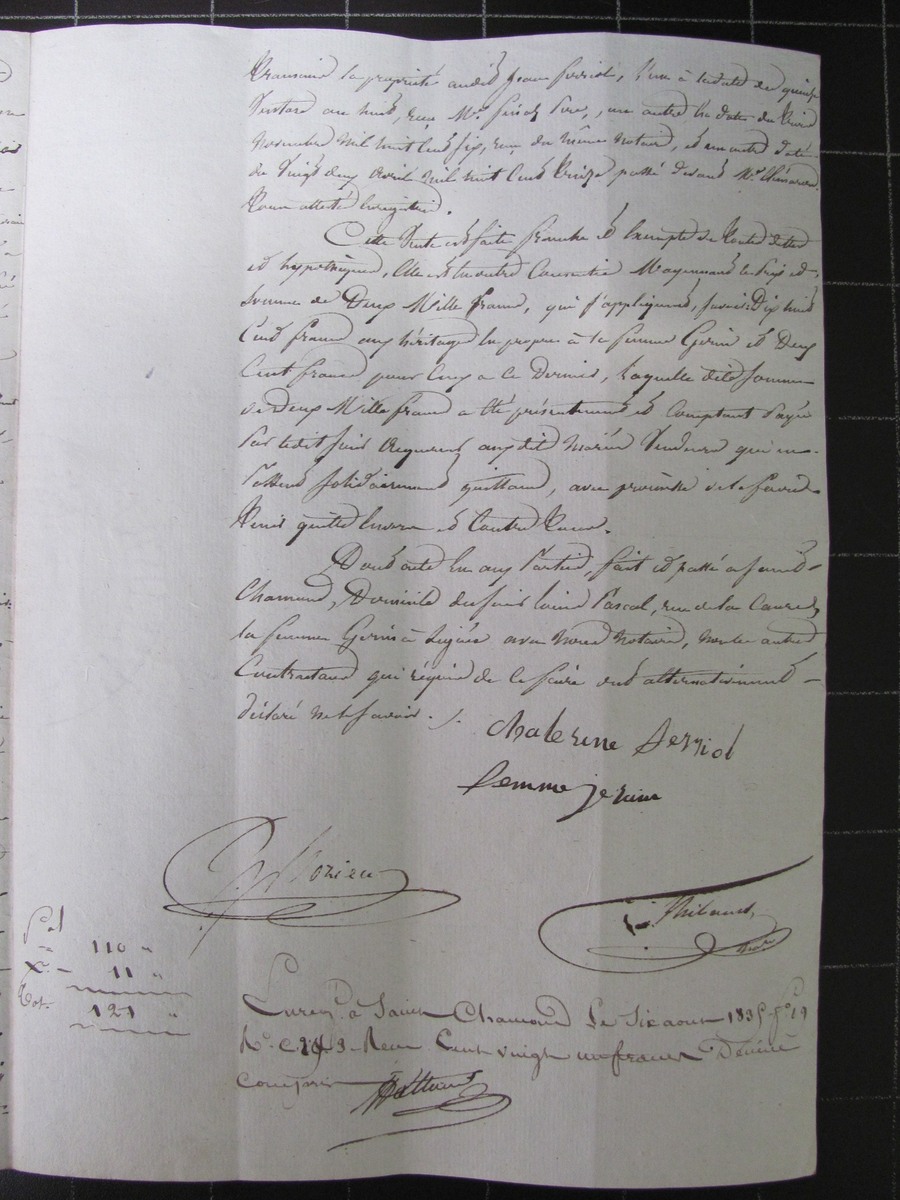 la propriété audit jean ferriol, l'un à la date du quinze
Ventose an huit, reçu Me. père, un autre à la date du
Novembre mil huit cent six, reçu du même notaire, et un autre daté
du Vingt deux avril mil huit cent passé devant Me.

Cette Vente est faite franche et Exempte de toutes dettes
et hypothèques, Elle est en outre Consentie Moyennant le prix et
Somme de Deux Mille francs, qui s'appliquent, savoir: Dix huit
Cent francs aux héritages propres à la femme et Deux
Cent francs pour ceux à ce Dernier, Laquelle dite somme
de Deux Mille francs a été présentement et Comptant payée
par ledit acquéreur auxdits mariés Vendeurs qui en
passent solidairement quittance, avec promesse de le faire
tenir quitte Envers et Contre tous.
Dont acte Lu aux Parties, fait et passé à saint-
Chamond, Domicile du sieur Pascal, rue de la
la femme a signé avec Nous Notaires, non les autres
Contractans qui réquis de le faire ont alternativement
déclaré ne le savoir. /.
chaterine ferriol
femme jerine
Thibaud
Pal
110 "
Xe. 11 "
Tot. 121 "
Enregé. à Saint Chamond Le Six aout 1835 fo. 19
Ro. C. Reçu Cent vingt un francs Décime
compris